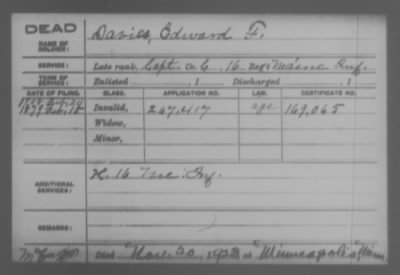 DEAD
NAME OF SOLDIER: Davies, Edward F.
SERVICE: Late rank, Capt. Co. G, 16 Reg't Maine Inf.
TERM OF SERVICE: Enlisted , 1 Discharged , 1
DATE OF FILING. CLASS. APPLICATION NO. LAW. CERTIFICATE NO.
Invalid, 267,417 age 169,065
Widow,
Minor,
ADDITIONAL SERVICES: K. 16 Me. Inf.
REMARKS:
Died Nov. 20, 1922 at Minneapolis Minn